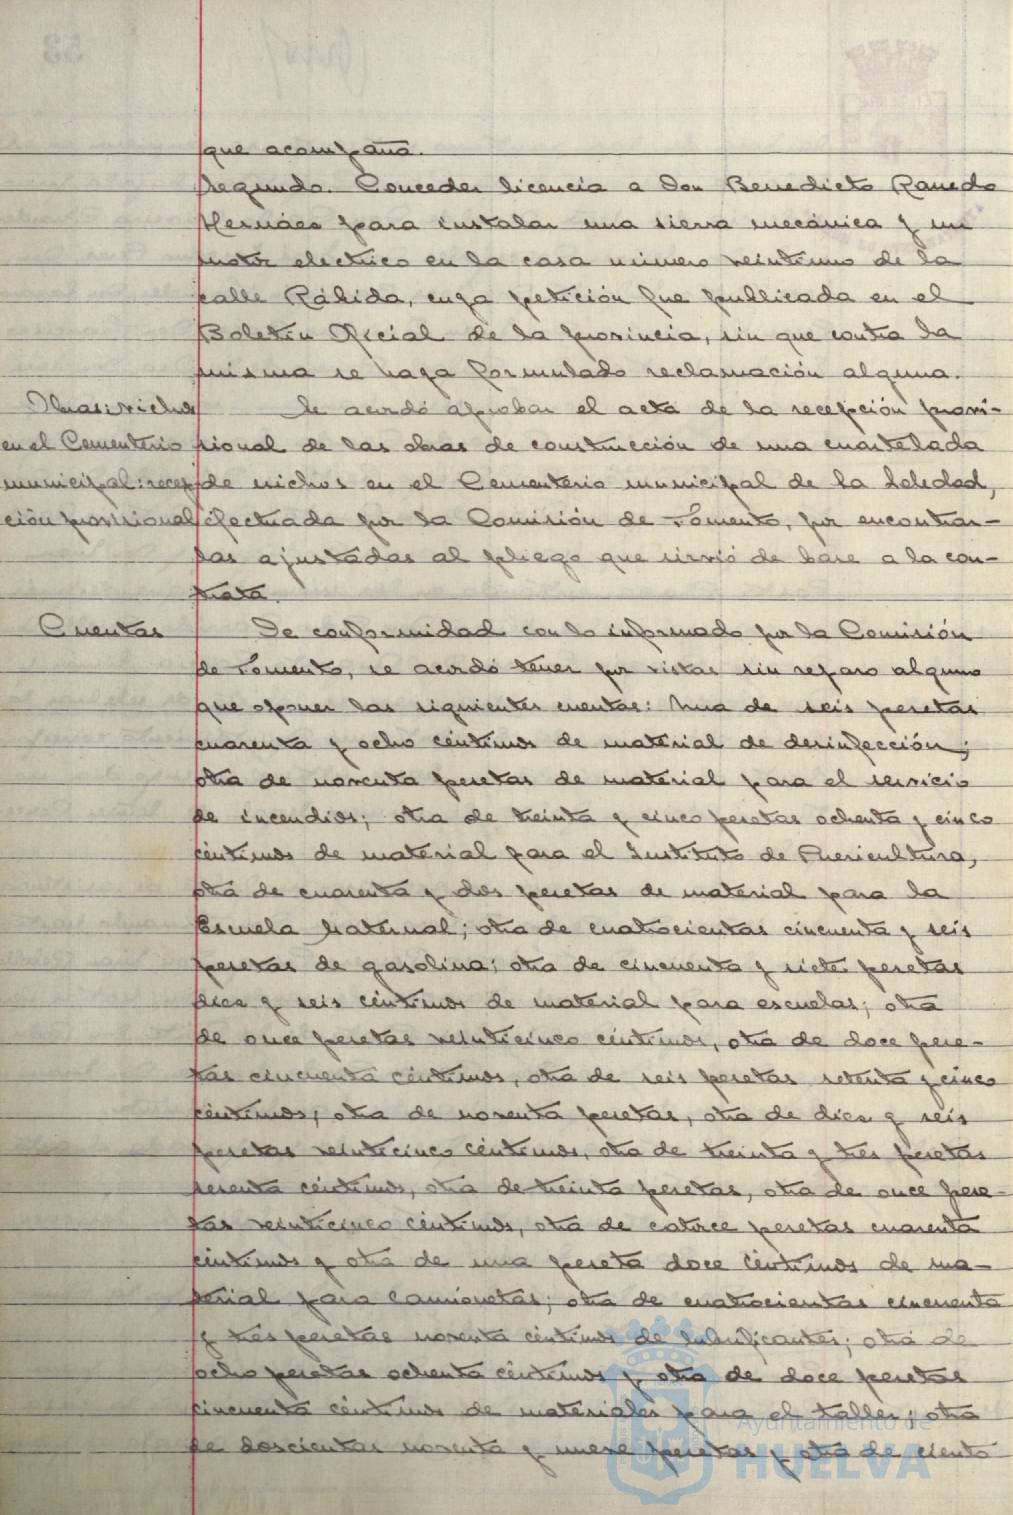 que acompaña.
Segundo. Conceder licencia a Don Benedicto
para instalar una sierra mecánica y un
motor electrico en la casa número veintiuno de la
calle Rábida, cuya petición fue publicada en el
Boletín Oficial de la provincia, sin que contra la
misma se haya formulado reclamación alguna.
Obras: nichos
en el Cementerio
municipal: recep
ción provisional
Se acordó aprobar el acta de la recepción provi-
sional de las obras de construcción de una cuartelada
de nichos en el Cementerio municipal de la Soledad,
efectuada por la Comisión de Fomento, por encontrar-
las ajustadas al pliego que sirvió de base a la con-
trata.
Cuentas
De conformidad con lo informado por la Comisión
de Fomento, se acordó tener por vistas sin reparo alguno
que oponer las siguientes cuentas: Una de seis pesetas
cuarenta y ocho céntimos de material de desinfección;
otra de noventa pesetas de material para el servicio
de incendios; otra de treinta y cinco pesetas ochenta y cinco
céntimos de material para el Instituto de Puericultura,
otra de cuarenta y dos pesetas de material para la
Escuela Maternal; otra de cuatrocientas cincuenta y seis
pesetas de gasolina; otra de cincuenta y siete pesetas
diez y seis céntimos de material para escuelas; otra
de once pesetas veinticinco céntimos, otra de doce pese-
tas cincuenta céntimos, otra de seis pesetas setenta y cinco
céntimos; otra de noventa pesetas, otra de diez y seis
pesetas veinticinco céntimos, otra de treinta y tres pesetas
sesenta céntimos, otra de treinta pesetas, otra de once pese-
tas veinticinco céntimos, otra de catorce pesetas cuarenta
céntimos y otra de una peseta doce céntimos de ma-
terial para camionetas; otra de cuatrocientas cincuenta
y tres pesetas noventa céntimos de lubrificantes; otra de
ocho pesetas ochenta céntimos y otra de doce pesetas
cincuenta céntimos de materiales para el taller; otra
de doscientas noventa y nueve pesetas y otra de ciento
Ayuntamiento de
HUELVA